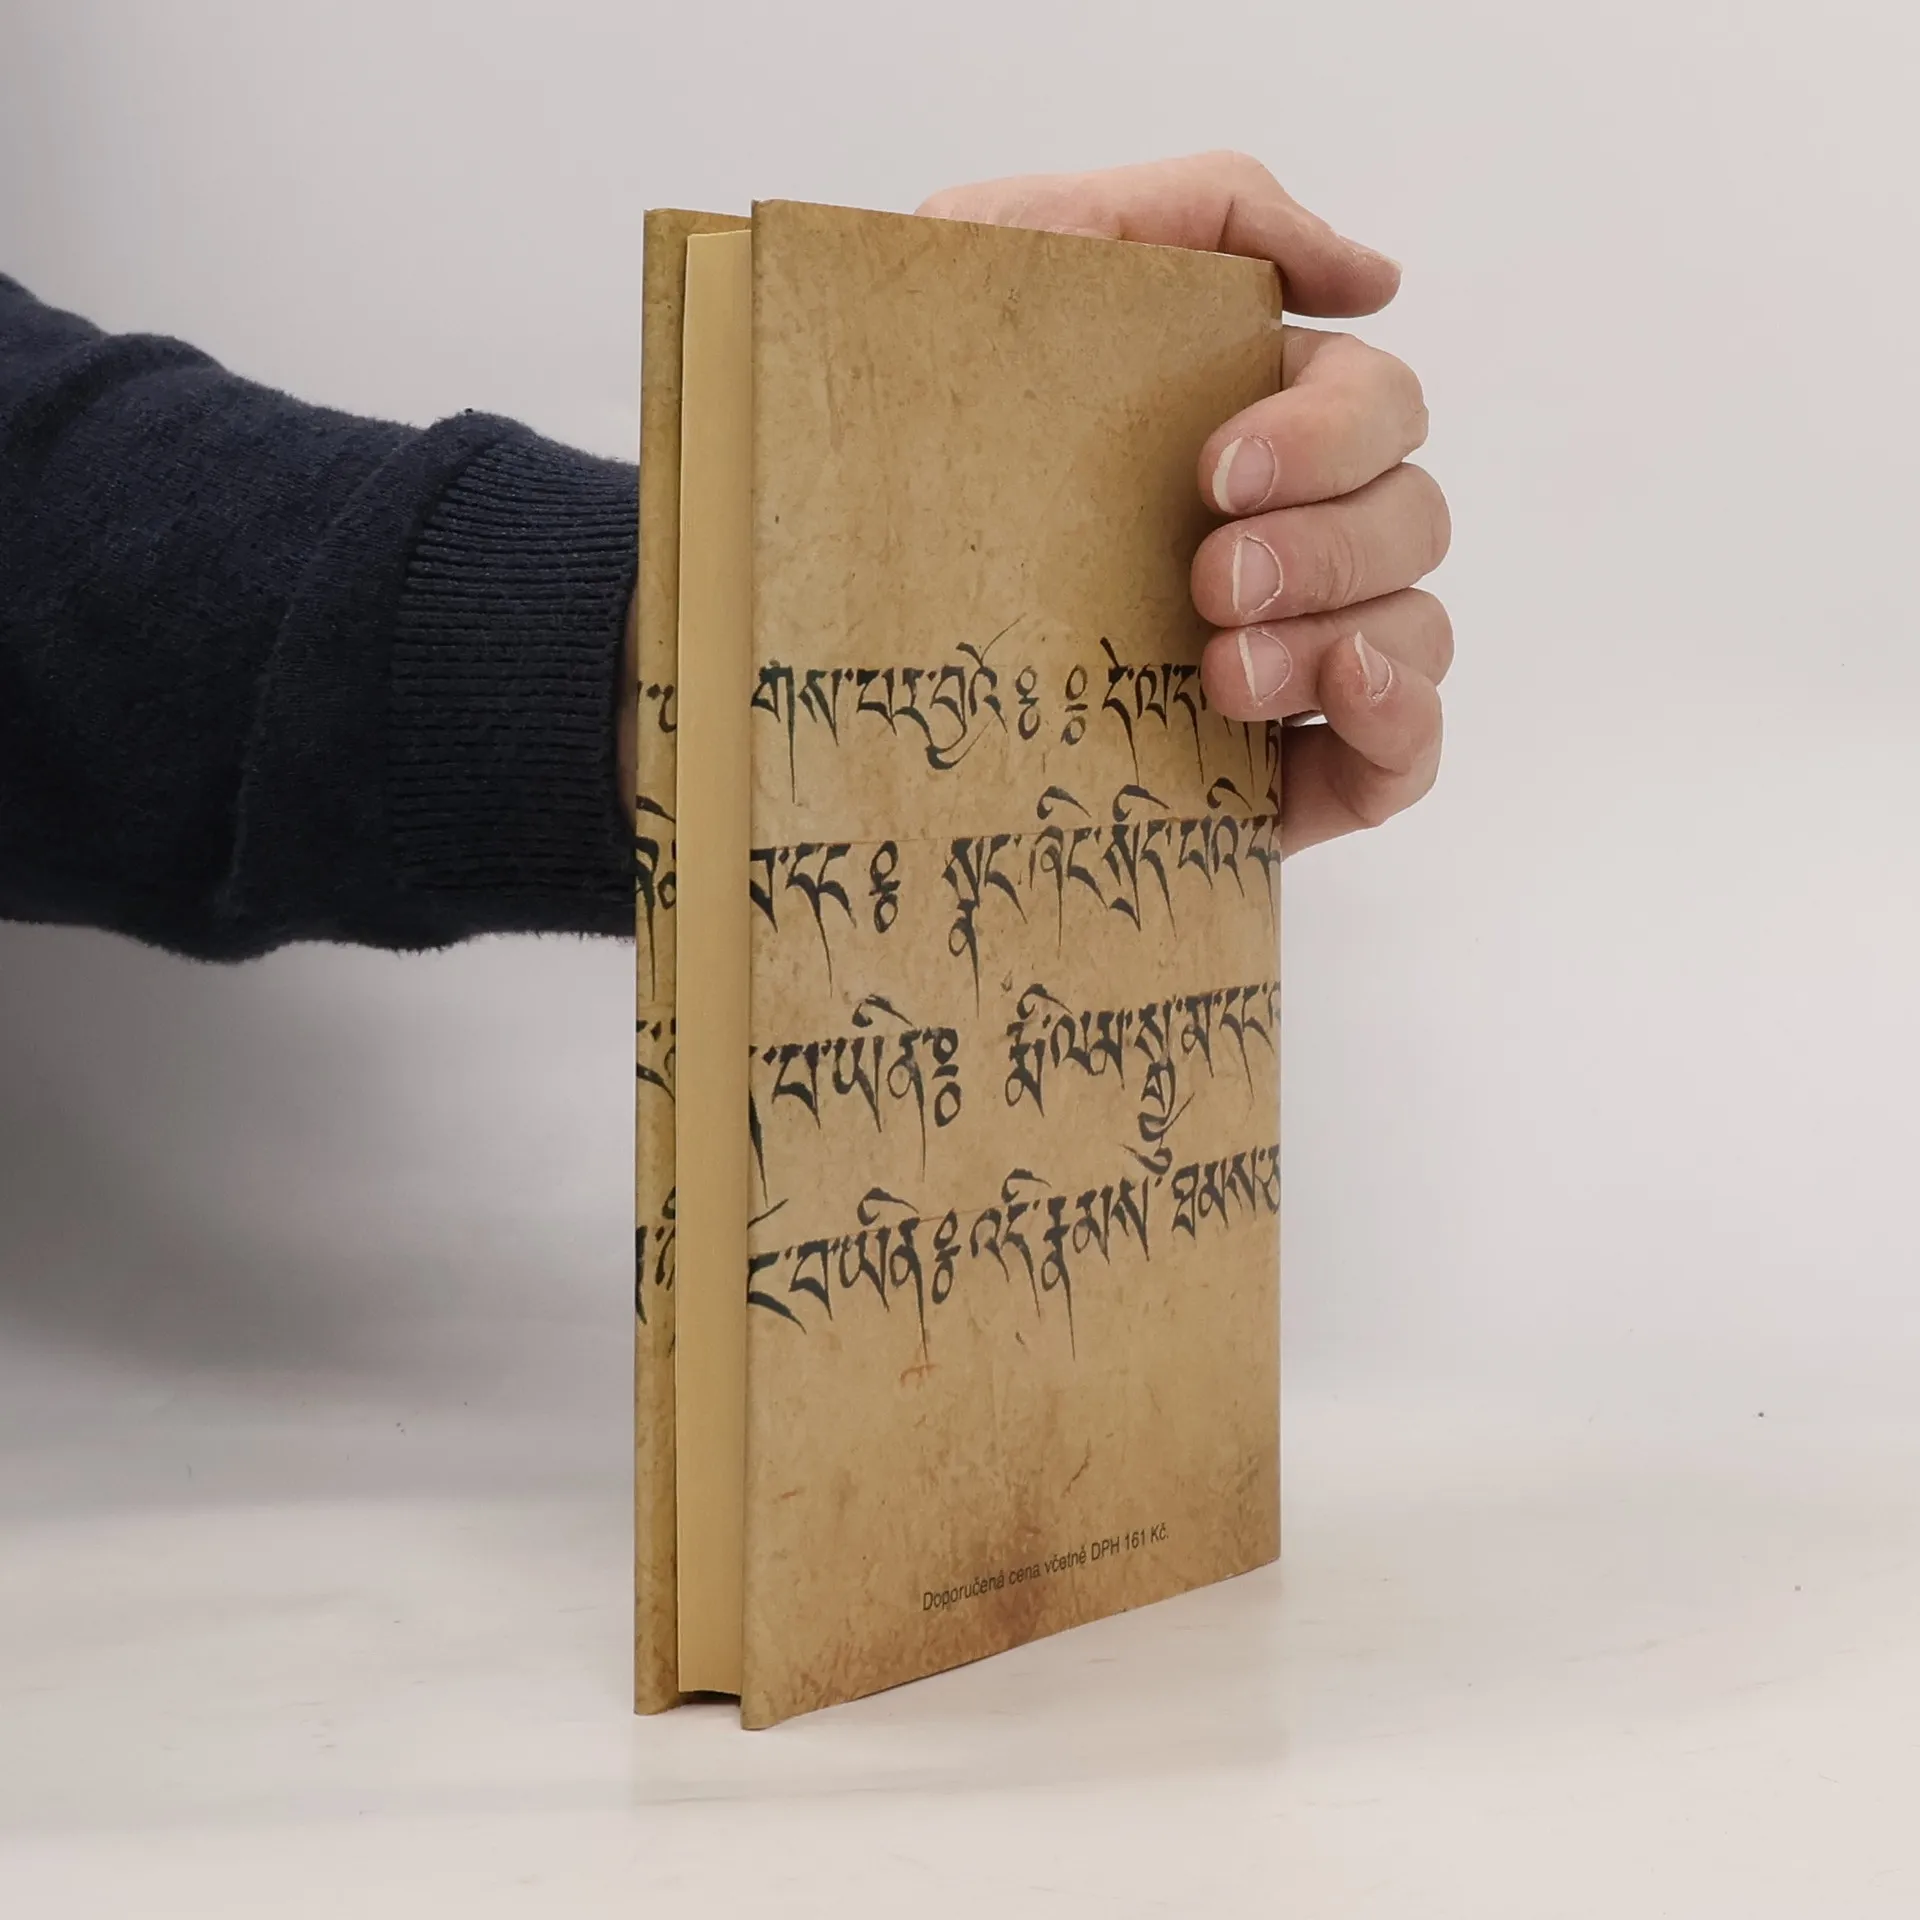 གས་པར་བྱའོ༔ ༔ དེ་ལ་
བ་དང༔ སྣང་ཞིང་སྲིད་པའི་
པ་ཡིན༔ རྨི་ལམ་སྒྱུ་མ་དང་
བ་ཡིན༔ འདི་རྣམས་ཐམས་
Doporučená cena včetně DPH 161 Kč.